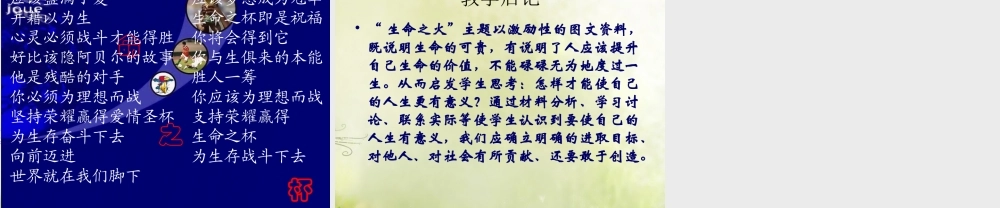 Joue
并藉以为生
心灵必须战斗才能得胜
好比该隐阿贝尔的故事
他是残酷的对手
你必须为理想而战
坚持荣耀赢得爱情圣杯
为生存奋斗下去
向前迈进
世界就在我们脚下
生命之杯即是祝福
你将会得到它
你与生俱来的本能
胜人一筹
你应该为理想而战
支持荣耀赢得
生命之杯
为生存战斗下去
之
杯
教学后记
• “生命之大”主题以激励性的图文资料，
既说明生命的可贵，有说明了人应该提升
自己生命的价值，不能碌碌无为地度过一
生。从而启发学生思考：怎样才能使自己
的人生更有意义？通过材料分析、学习讨
论、联系实际等使学生认识到要使自己的
人生有意义，我们应确立明确的进取目标、
对他人、对社会有所贡献、还要敢于创造。